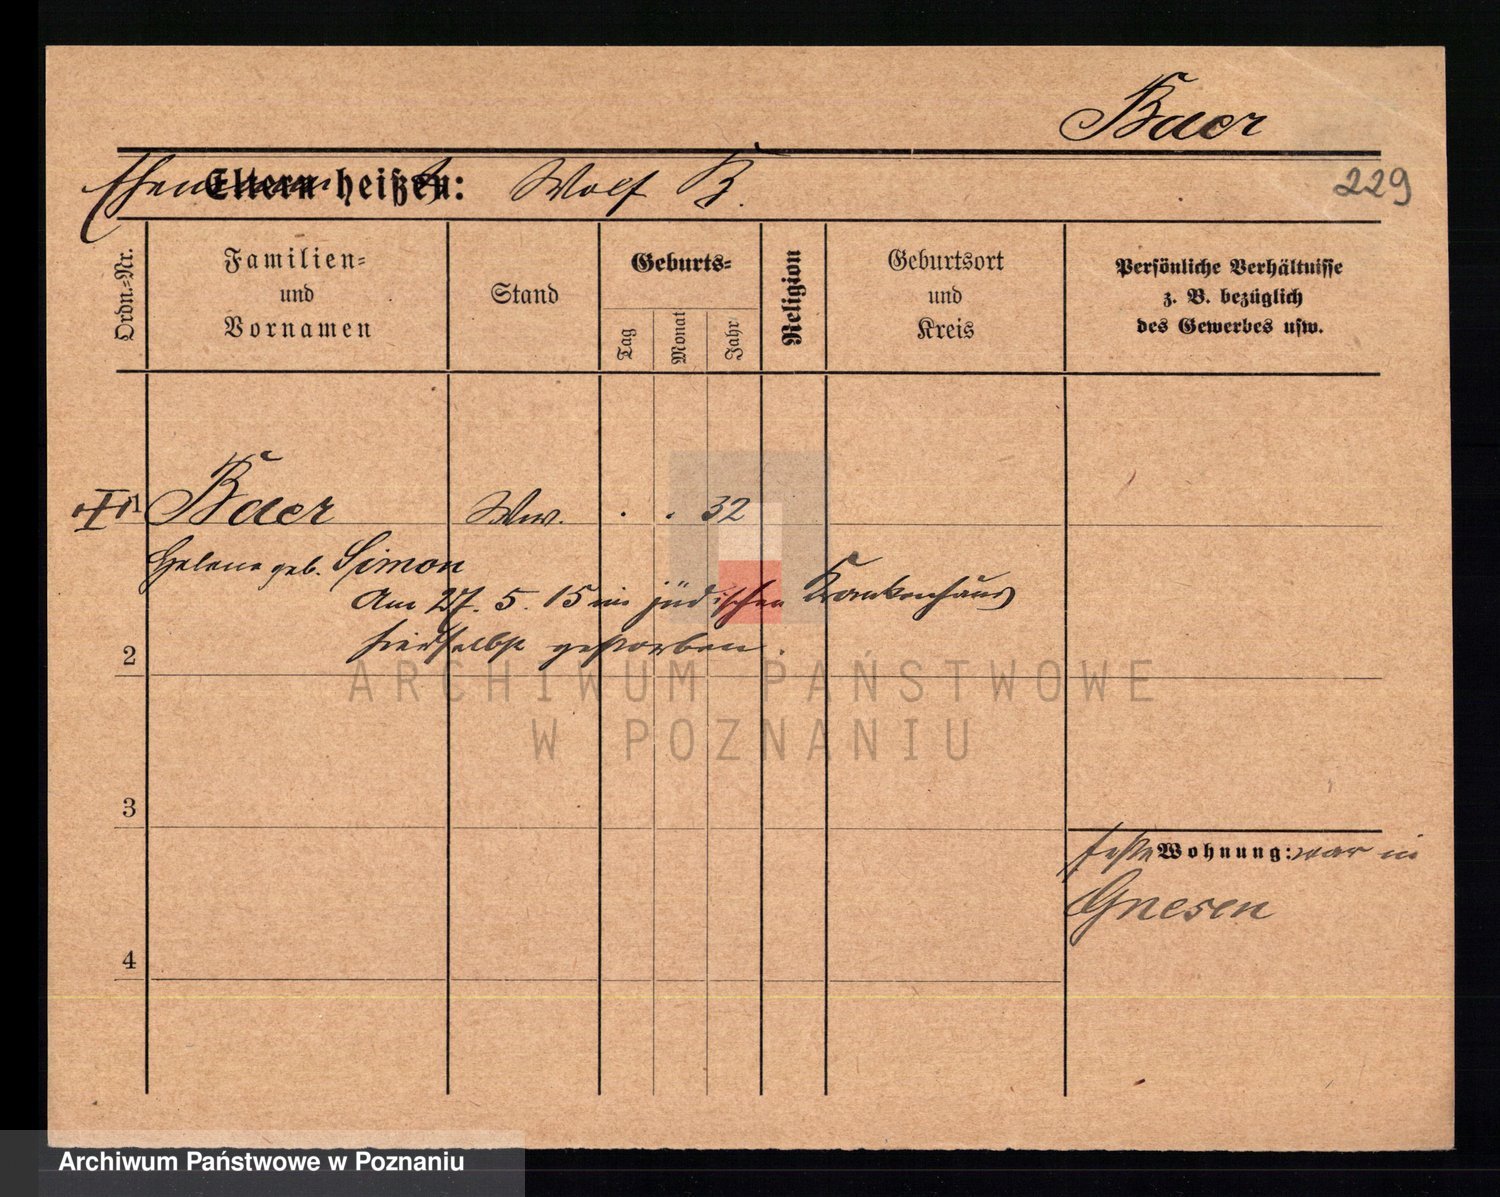 Baer
Eltern heißen: Wolf B.
229
Ordn.=Nr.
Familien=
und
Vornamen
Stand
Geburts=
Tag
Monat
Jahr
Religion
Geburtsort
und
Kreis
Persönliche Verhältnisse
z. B. bezüglich
des Gewerbes usw.
1
Baer Ww. . . 32
Helene geb. Simon
Am 27. 5. 15 im jüdischen Krankenhaus
hierselbst gestorben.
2
3
feste Wohnung: war in
Gnesen
4
ARCHIWUM PAŃSTWOWE
W POZNANIU
Archiwum Państwowe w Poznaniu